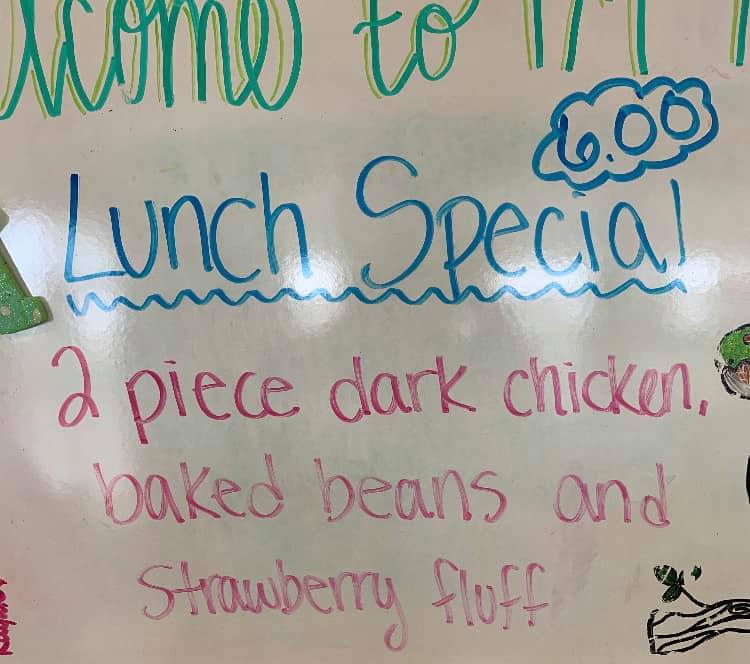 to
6.00
Lunch Special
2 piece dark chicken,
baked beans and
Strawberry fluff